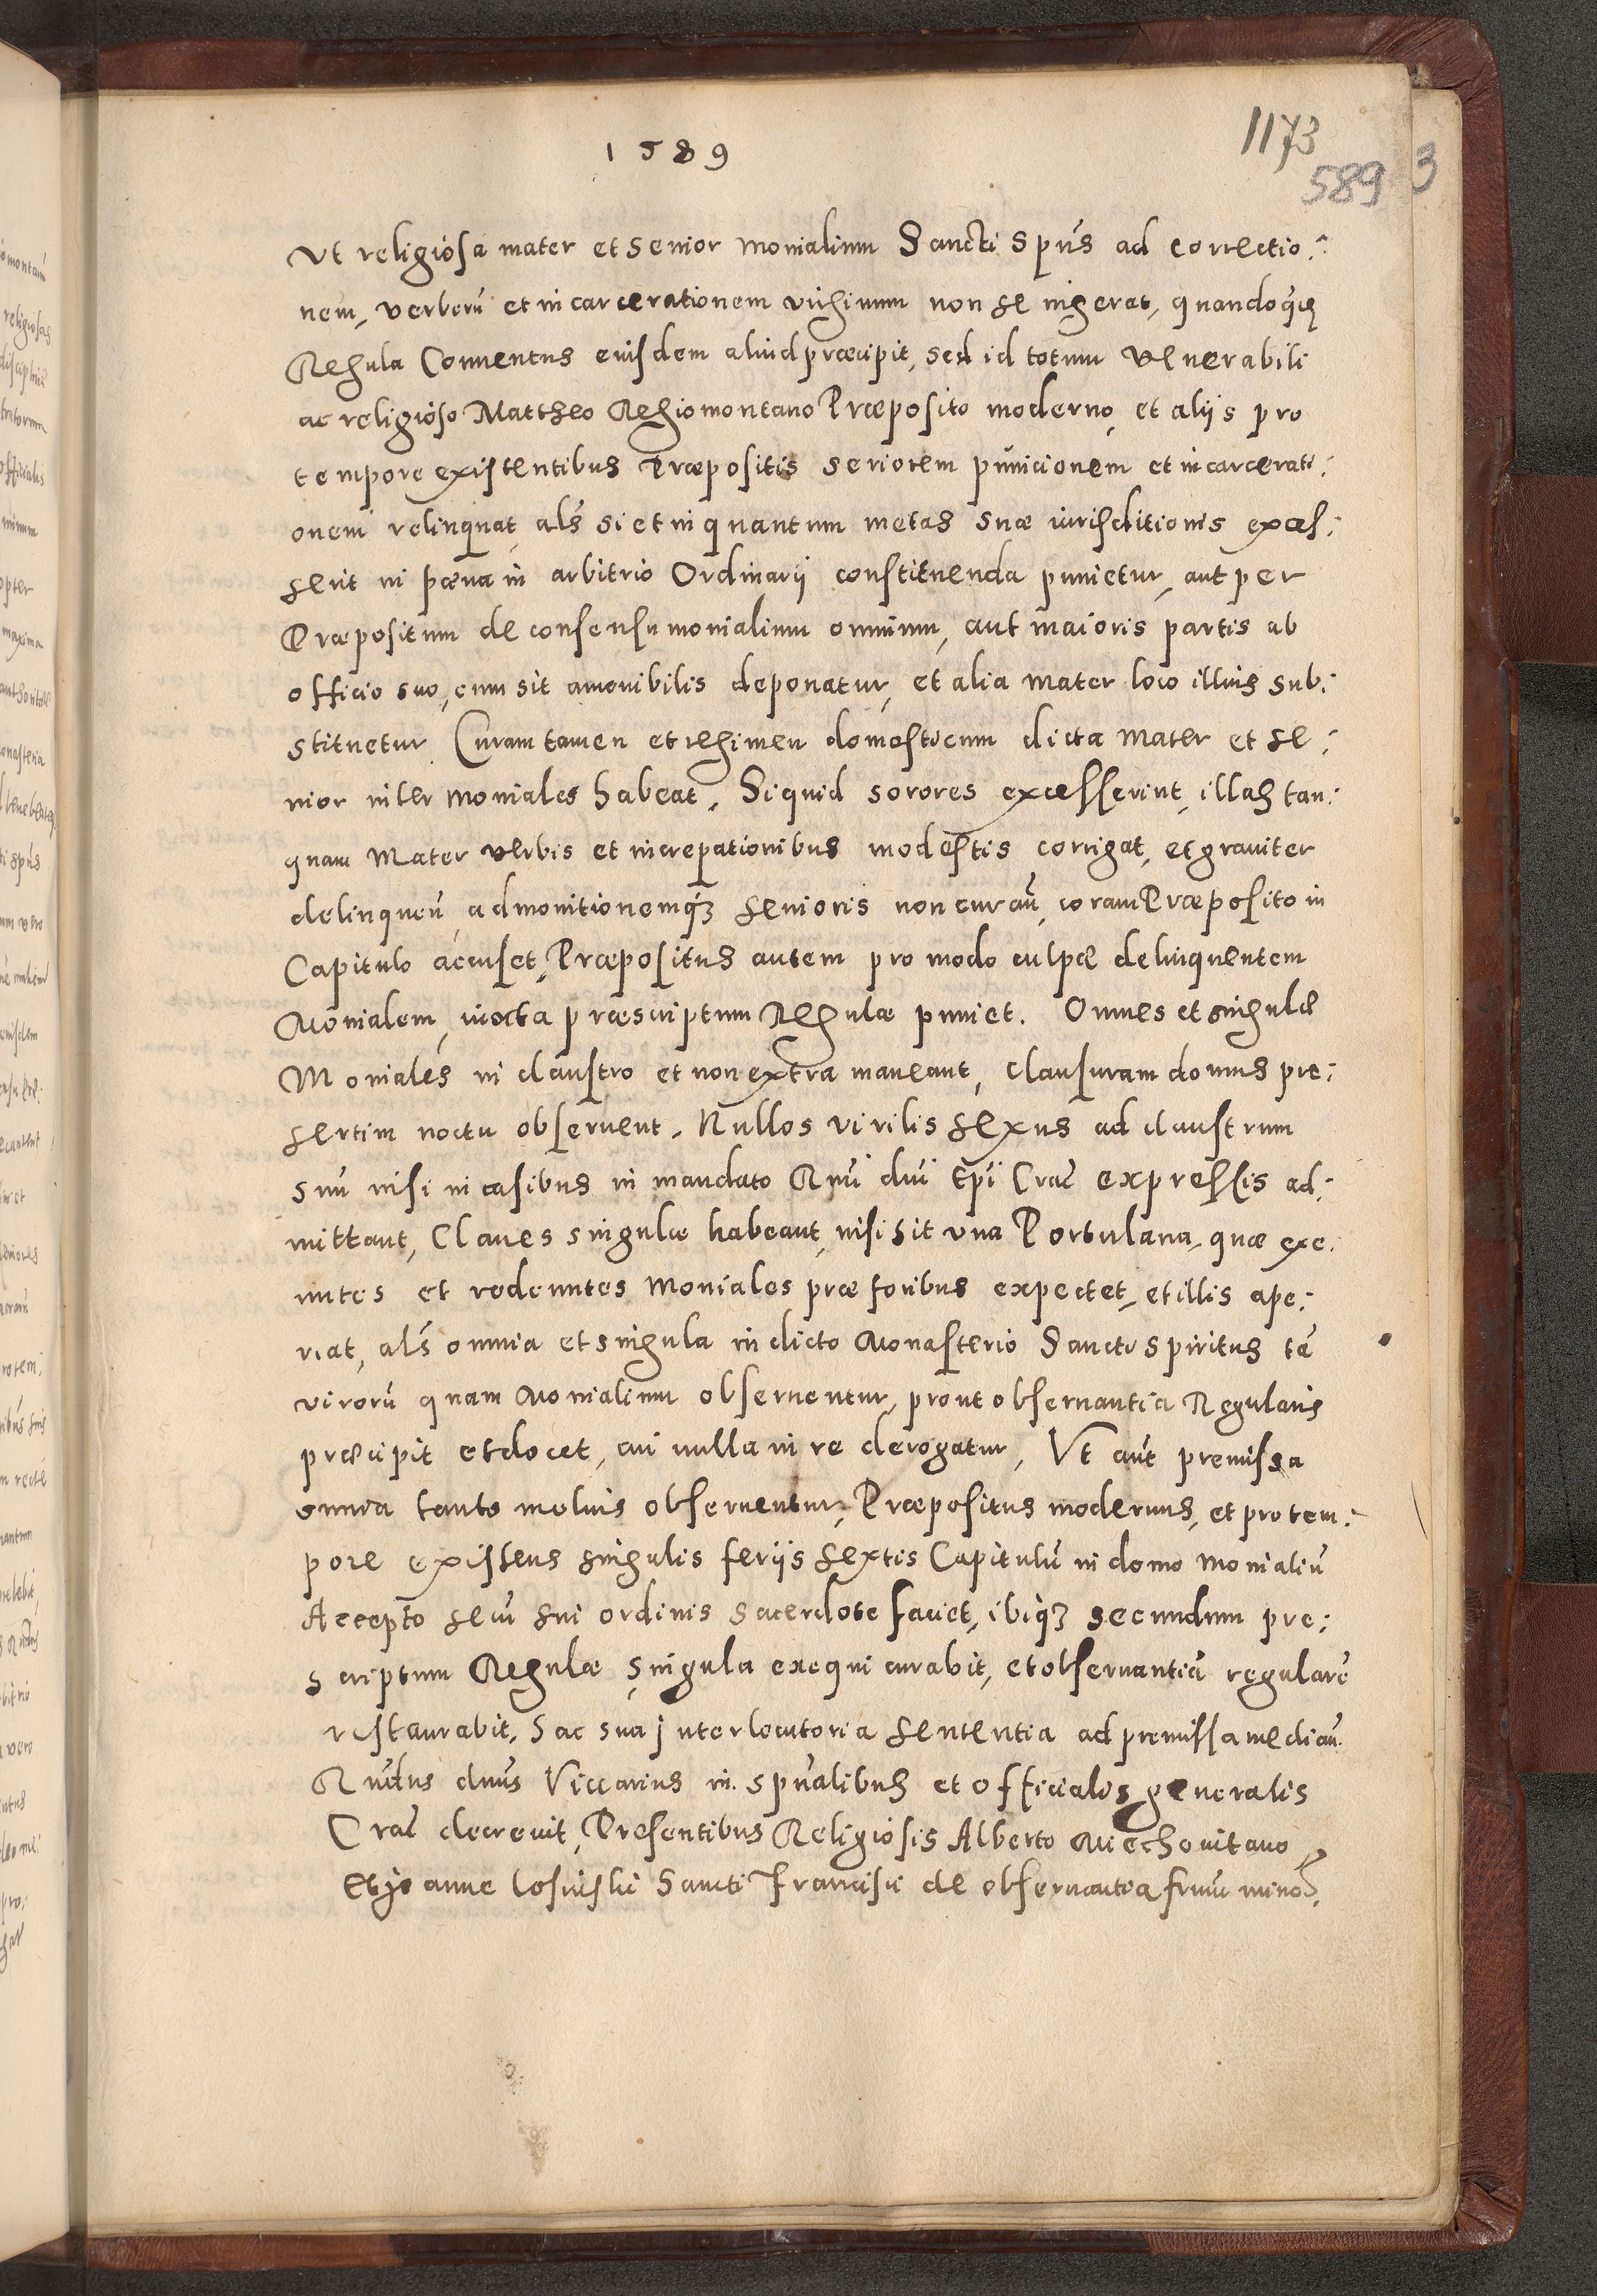 1589
1173
589 3
Vt religiosa mater et senior monialium Sancti Spūs ad correctio:
nem, verberū et incarcerationem virginum non se ingerat, quandoq́ꝫ
Regula Conuentus eiusdem aliud præcipit, sed id totum Venerabili
ac religioso Mattheo Regiomontano Præposito moderno, et alijs pro
tempore existentibus Præpositis seriorem punicionem et incarcerati:
onem relinquat, als̄ si et in quantum metas suæ iurisditionis exces:
serit in pœna in arbitrio Ordinarij constituenda punietur, aut per
Præpositum de consensu monialium omnium, aut maioris partis ab
officio suo, cum sit amouibilis deponatur, et alia mater loco illius sub:
stituetur Curam tamen et regimen domesticum dicta mater et se:
nior inter moniales habeat. Si quid sorores excesserint, illas tan:
quam Mater verbis et increpationibus modestis corrigat, et grauiter
delinqueń, admonitionemq́ꝫ senioris non curań, coram Præposito in
Capitulo accuset, Præpositus autem pro modo culpæ delinquentem
Monialem, iuxta præscriptum Regulæ puniet. Omnes et singulæ
Moniales in claustro et non extra maneant, clausuram domus pre:
sertim noctu obseruent. Nullos virilis sexus ad claustrum
suū nisi in casibus in mandato Rm̄i dn̄i Ep̄i Crac̄ expressis ad:
mittant, Claues singulæ habeant, nisi sit vna Portulana, quæ exe:
untes et redeuntes Moniales præ foribus expectet, et illis ape:
riat, als̄ omnia et singula in dicto Monasterio Sancti Spiritus tā
virorū quam Monialium obseruentur, prout obseruantia Regularis
præcipit et docet, cui nulla in re derogatur, Vt aūt premissa
omnia tanto melius obseruentur, Præpositus modernus, et pro tem:
pore existens singulis ferijs sextis Capitulū in domo monialiū
Accepto secū sui ordinis sacerdote faciet, ibiq́ꝫ secundum pre:
scriptum Regulæ singula exequi curabit, et obseruantiā regularē
restaurabit, hac sua interlocutoria sententia ad premissa median̄.
Rn̄dus dn̄us Viccarius in spūalibus et officialis generalis
Crac̄ decreuit, Presentibus Religiosis Alberto Miechouitano
Et Joanne Losinski Sancti Francisci de obseruantia frum̄ mino&#42843;.